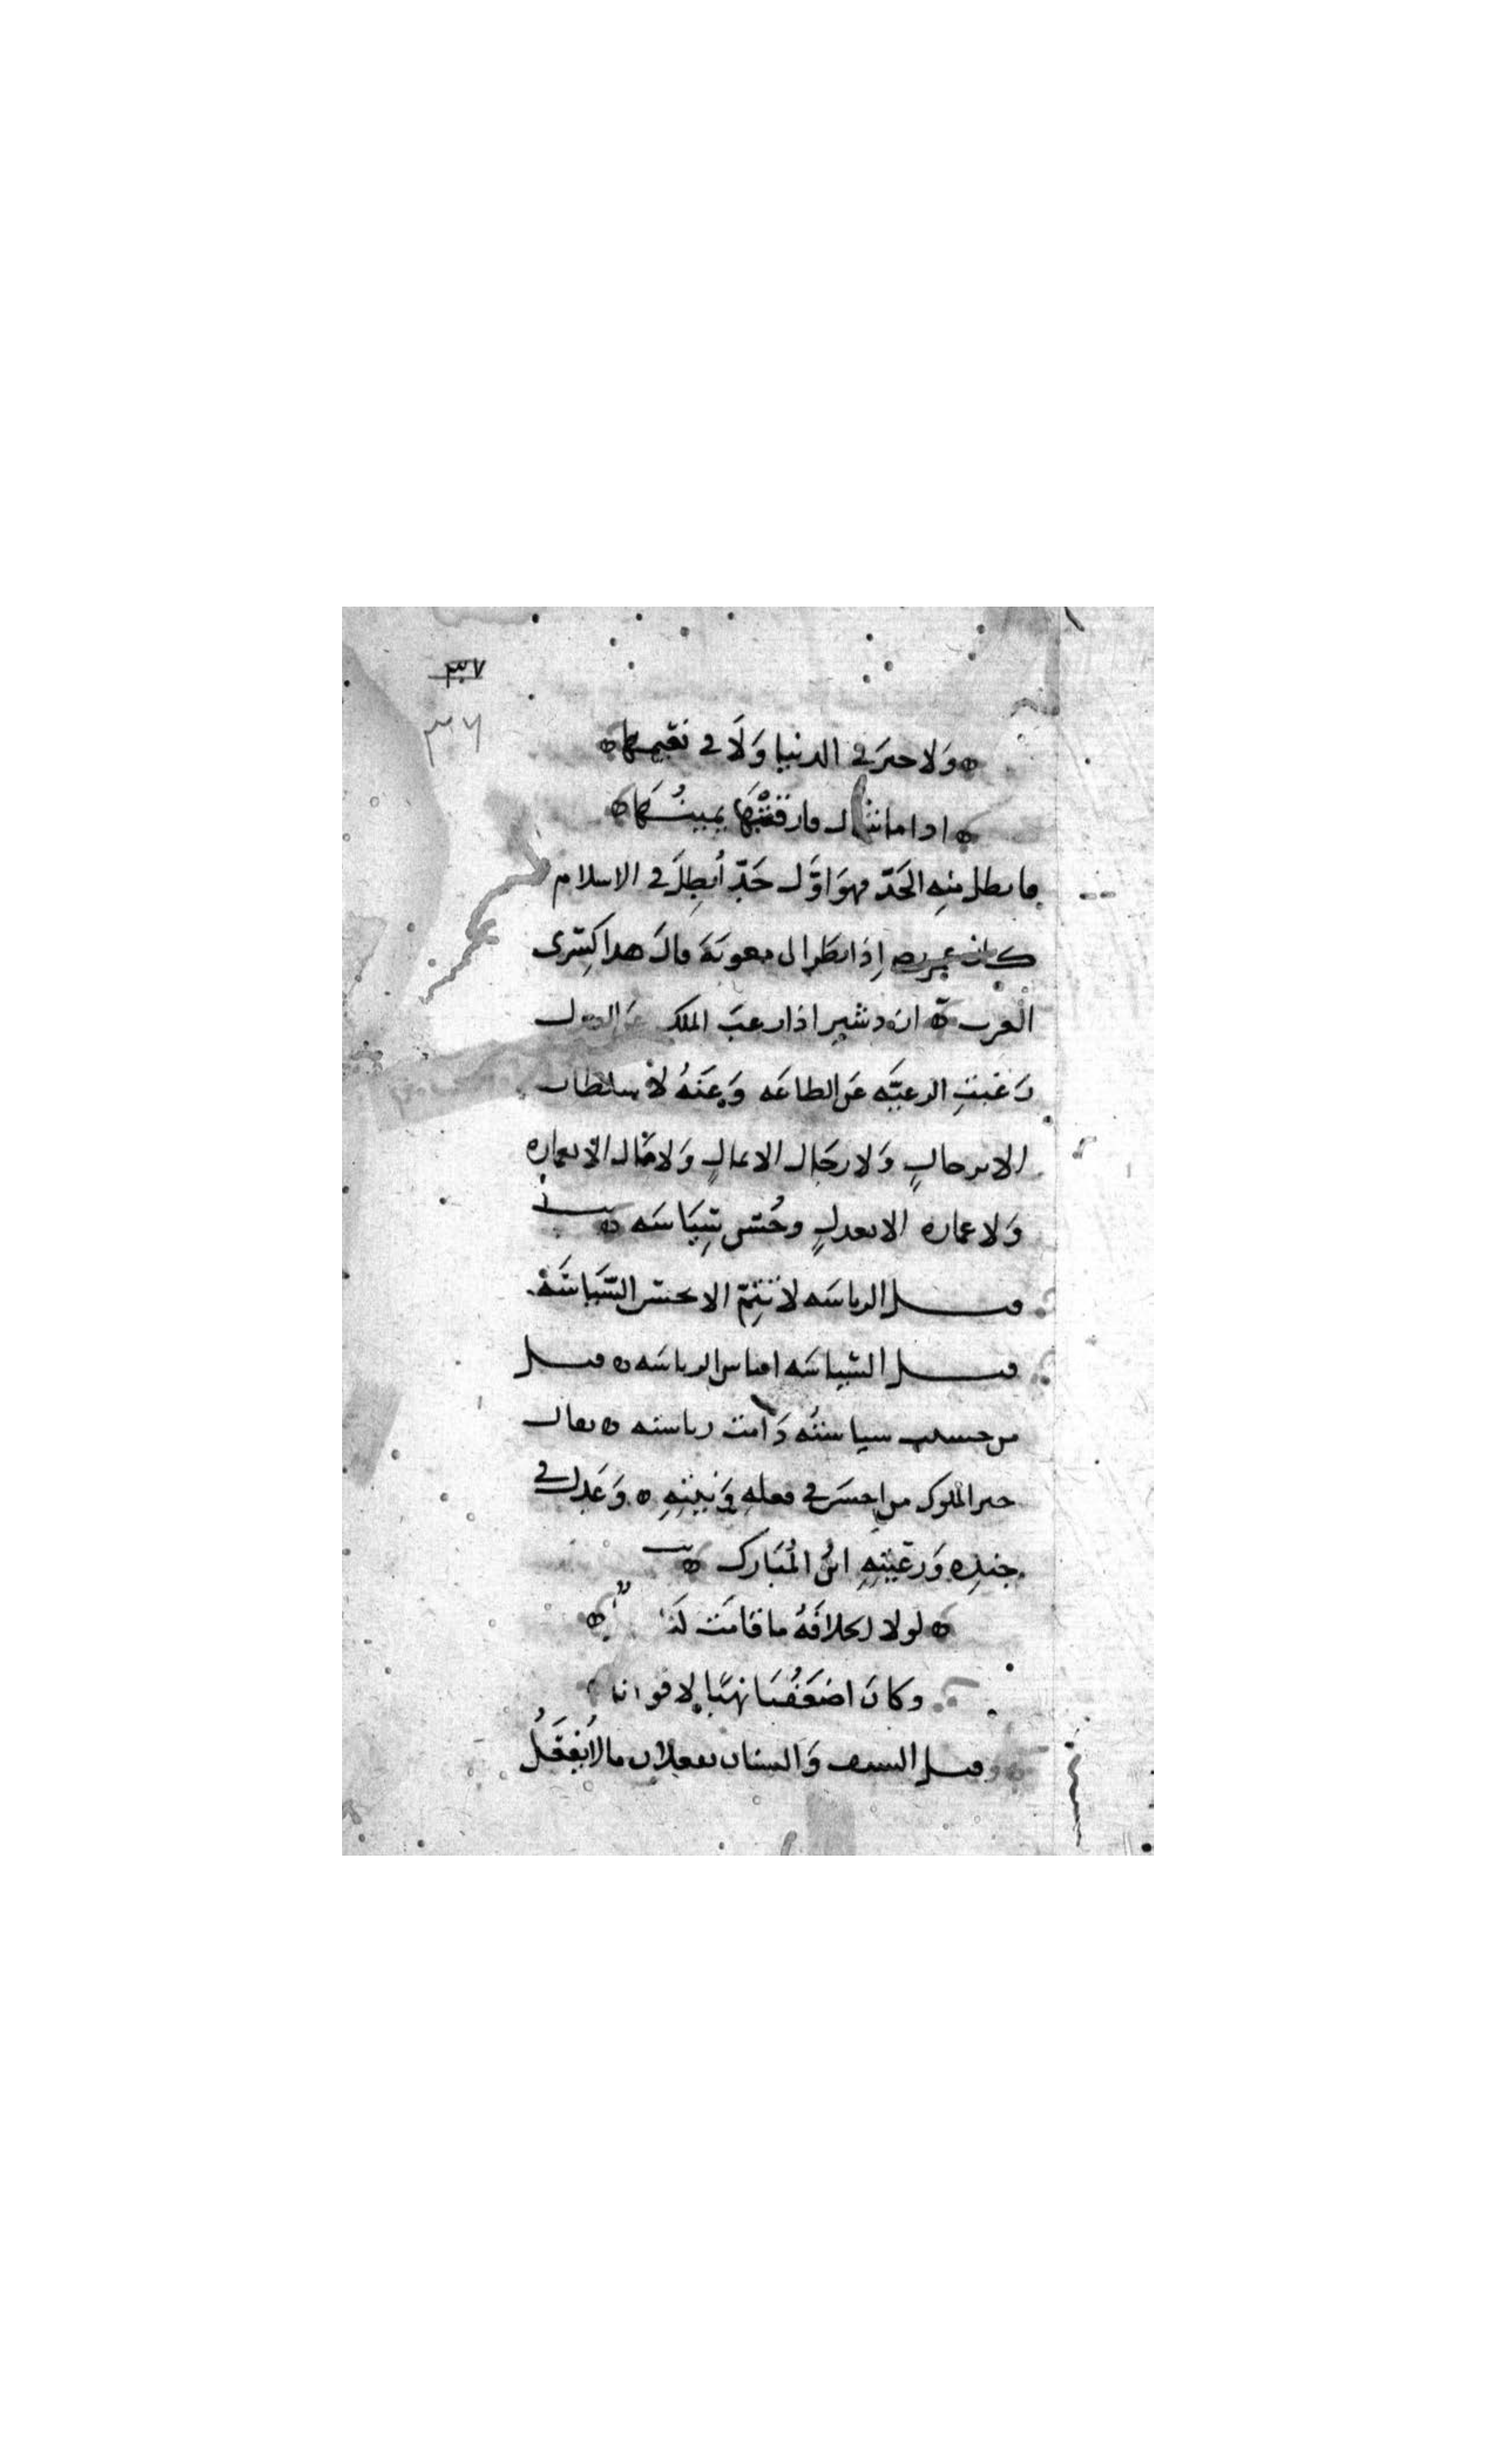 ٣٧
٣٦
ولا خيرَ في الدنيا وَلَا في نعيمها
اذا ما شمال فارقَتْهَا يمينُها
فابطل منه الحَدّ فهوَ اوّل حَدّ أُبطِلَ في الاسلام
كان عمر إذا نظر الى معوية قال هذا كِسْرى
العرب اردشير اذا رغبَ الملك عن العدل
رَغبتِ الرعيّة عن الطاعَه وَعَنهُ لا سلطان
الا برجالٍ وَلا رجال الا بمالٍ وَلا مال الا بعماره
وَلا عماره الا بعدلٍ وحُسن سِيَاسَه
قيل الرياسَه لا تتِمّ الا بحسن السّيَاسَة
قيل السياسَه اساس الرياسَه قيل
من حسنت سياسته دَامت رياسته يقال
خير الملوك من احسَن في فعله وَنيتِهِ وَعَدل في
جندِه وَرعيّتِهِ ابنُ المُبَارك
لولا الخلافَةُ ما قامَت لنا
وكانَ اضعَفُنا نهبًا لاقوانا
قيل السيف وَالسنان يفعلان ما لا يفعَلُ